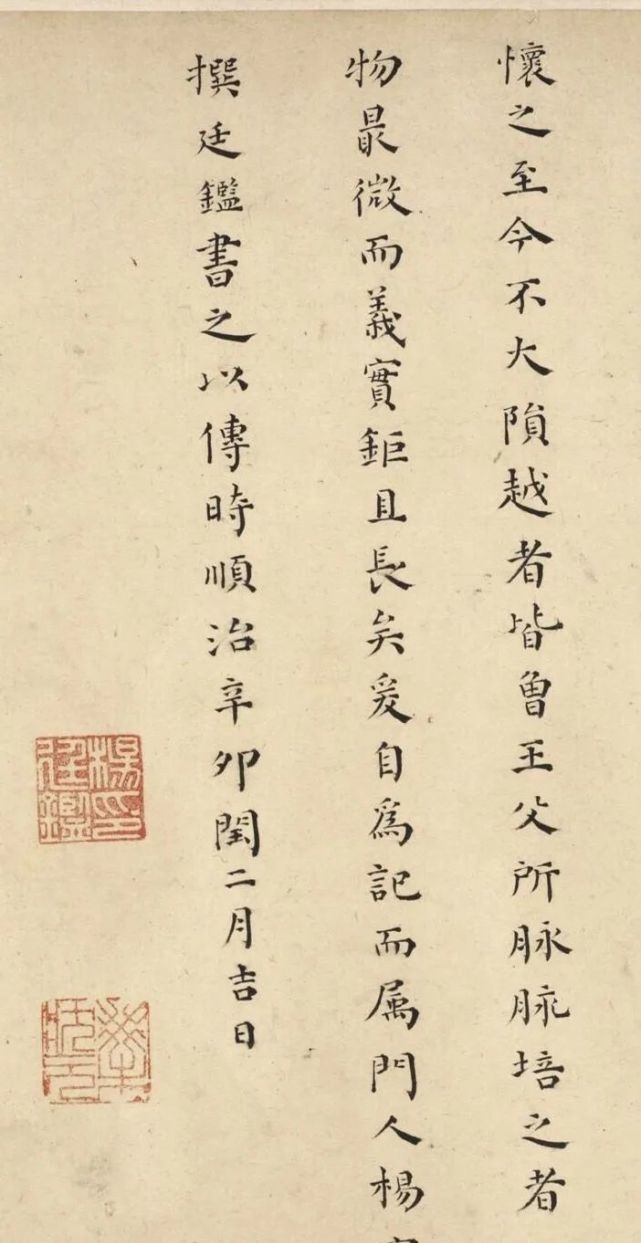 懷之至今不大隕越者皆曾王父所脉脉培之者
物最微而義實鉅且長矣爰自為記而属門人楊
撰廷鑑書之以傳時順治辛卯閏二月吉日
楊廷鑑印